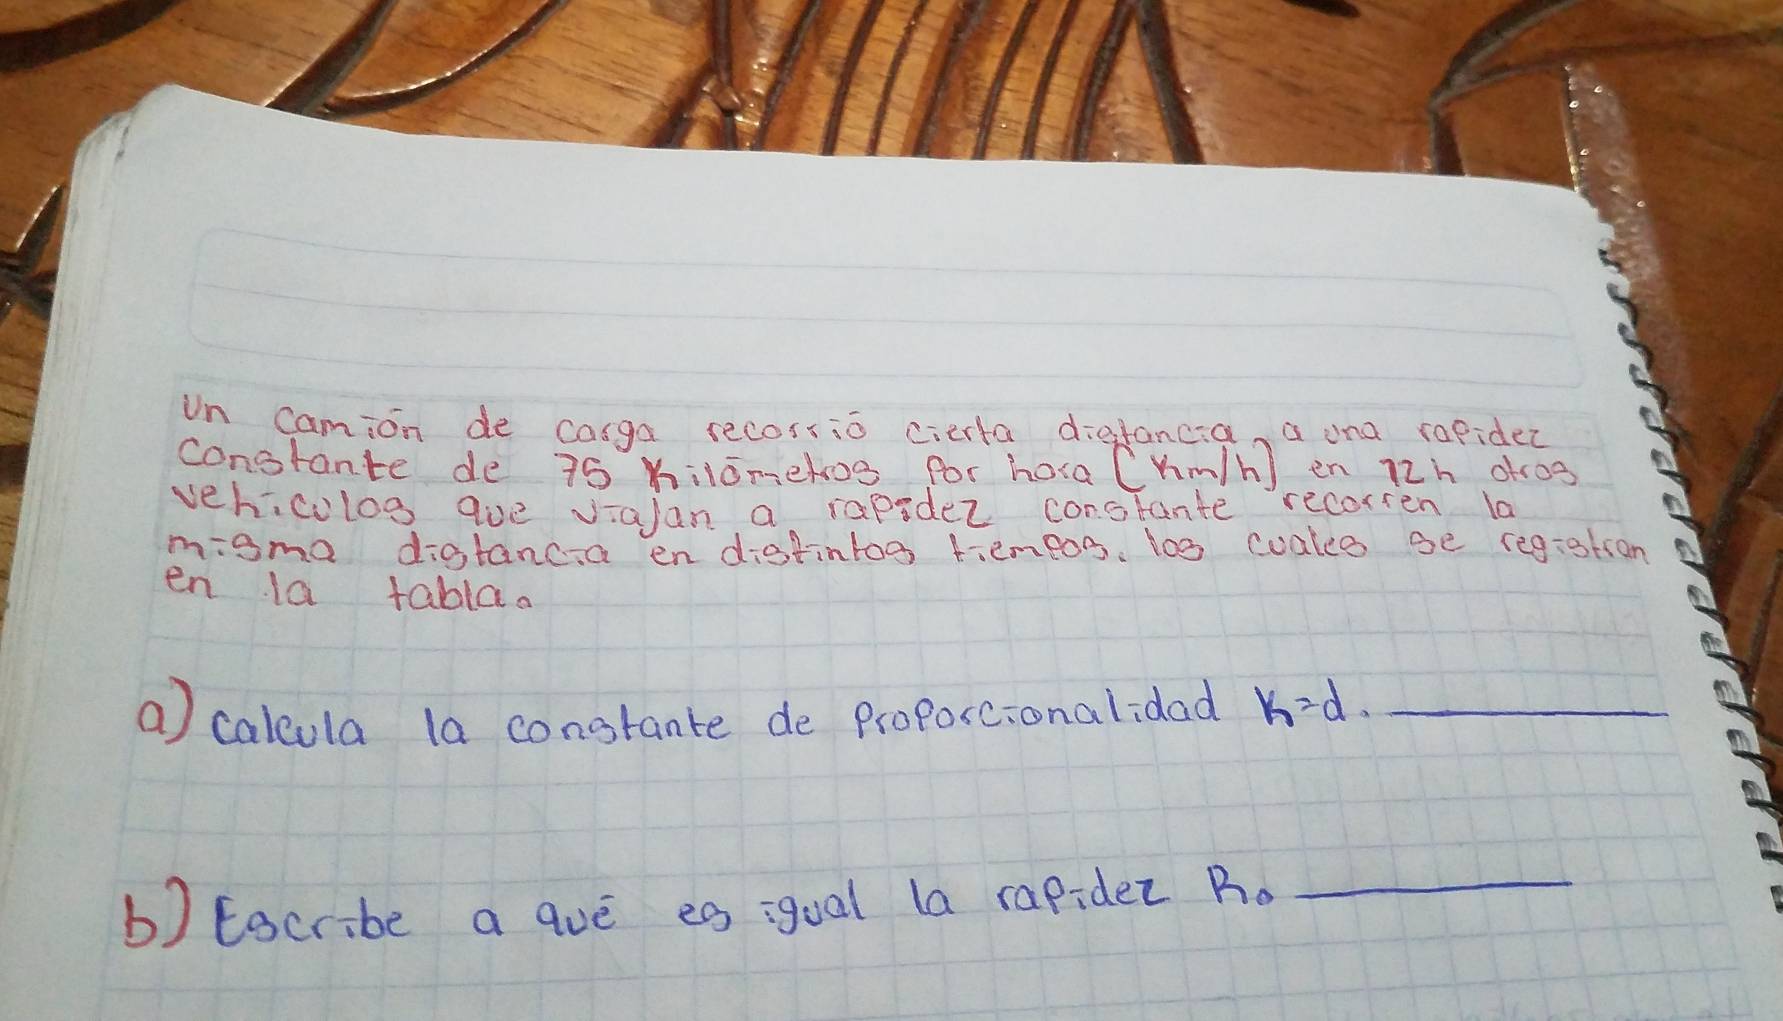 un camión de carga recorrió cierta distancia, a una rapidez
constante de 75 Kilómetros por hora [Km/h] en 12h otros
vehiculos que viajan a rapidez constante recorren la
misma distancia en distintos tiempos. los cuales se registran
en la tabla.
a) calcula la constante de proporcionalidad K=d.
b) Escribe a qué es igual la rapidez R.